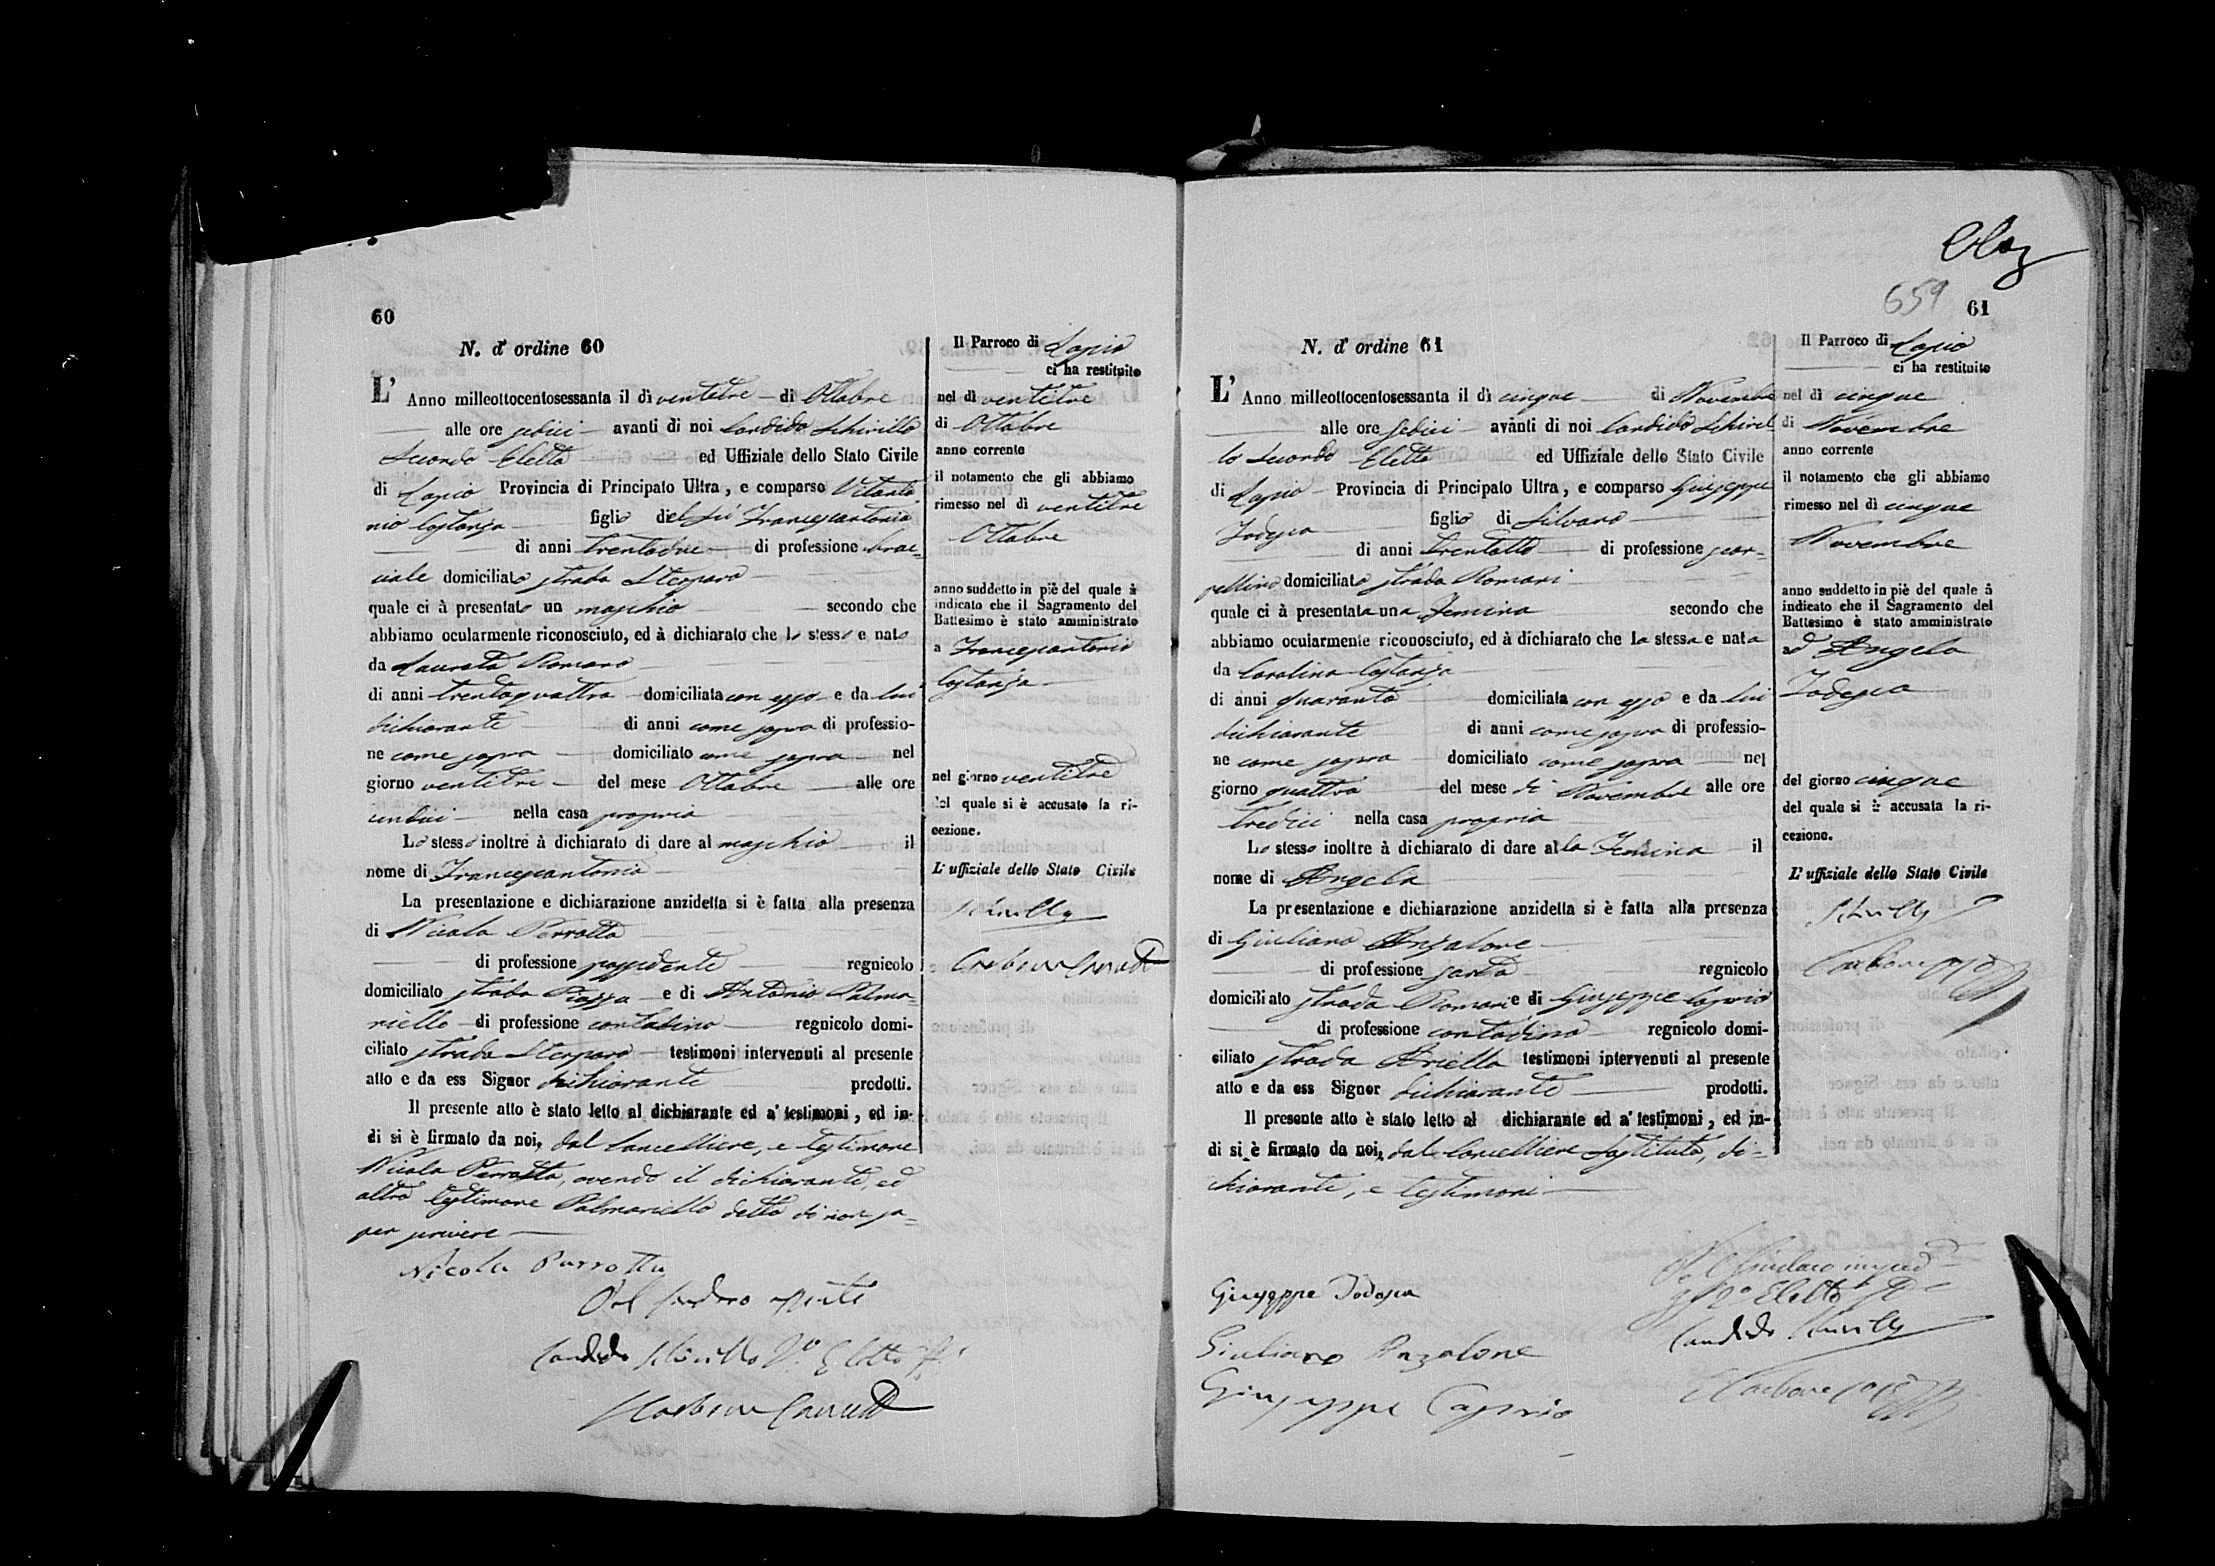 60
N. d' ordine 60
L' Anno milleottocentosessanta il dì ventitre di Ottobre
alle ore sedici avanti di noi Candido Schirillo
Secondo Eletto ed Uffiziale dello Stato Civile
di Lapio Provincia di Principato Ultra, e comparso Vitanto
nio Costanza figlio del fu Francescantonio
di anni trentadue di professione brac=
ciale domiciliato strada Sterparo
quale ci à presentato un maschio secondo che
abbiamo ocularmente riconosciuto, ed à dichiarato che lo stesso e nato
da Laureta Romano
di anni trentaquattro domiciliata con esso e da lui
dichiarante di anni come sopra di professio-
ne come sopra domiciliato come sopra nel
giorno ventitre del mese Ottobre alle ore
undici nella casa propria
Lo stesso inoltre à dichiarato di dare al maschio il
nome di Francescantonio
La presentazione e dichiarazione anzidetta si è fatta alla presenza
di Nicola Perrotta
di professione possidente regnicolo
domiciliato strada Piazza e di Antonio Palma=
riello di professione contadino regnicolo domi-
ciliato strada Sterparo testimoni intervenuti al presente
atto e da ess Signor dichiarante prodotti.
Il presente atto è stato letto al dichiarante ed a' testimoni, ed in-
di si è firmato da noi, dal Cancelliere, e testimone
Nicola Perrotta, avendo il dichiarante, ed
altro testimone Palmariello detto di non sa=
per scrivere
Nicola Perrotta
Candido Schirillo 2º Eletto
Il Parroco di Lapio
ci ha restituito
nel dì ventitre
di Ottobre
anno corrente
il notamento che gli abbiamo
rimesso nel dì ventitre
Ottobre
anno suddetto in piè del quale à
indicato che il Sagramento del
Battesimo è stato amministrato
a Francescantonio
Costanza
nel giorno ventitre
del quale si è accusato la ri-
cezione.
L' uffiziale dello Stato Civile
Schirillo
659
61
N. d' ordine 61
L' Anno milleottocentosessanta il dì cinque di Novembre
alle ore sedici avanti di noi Candido Schiril
lo Secondo Eletto ed Uffiziale dello Stato Civile
di Lapio Provincia di Principato Ultra, e comparso Giuseppe
Iodesca figlio di Silvano
di anni trentotto di professione scar=
pellino domiciliato strada Romani
quale ci à presentata una Femina secondo che
abbiamo ocularmente riconosciuto, ed à dichiarato che la stessa e nata
da Carolina Costanza
di anni quaranta domiciliata con esso e da lui
dichiarante di anni come sopra di professio-
ne come sopra domiciliato come sopra nel
giorno quattro del mese di Novembre alle ore
tredici nella casa propria
Lo stesso inoltre à dichiarato di dare alla Femina il
nome di Angela
La presentazione e dichiarazione anzidetta si è fatta alla presenza
di Giuliano Anzalone
di professione sarto regnicolo
domiciliato strada Romani e di Giuseppe Caprio
di professione contadino regnicolo domi-
ciliato strada Ariella testimoni intervenuti al presente
atto e da ess Signor dichiarante prodotti.
Il presente atto è stato letto al dichiarante ed a' testimoni, ed in-
di si è firmato da noi, dal Cancelliere sostituto, di=
chiarante, e testimoni
Giuseppe Iodesca
Giuliano Anzalone
Giuseppe Caprio
2º Eletto
Candido Schirillo
Il Parroco di Lapio
ci ha restituito
nel dì cinque
di Novembre
anno corrente
il notamento che gli abbiamo
rimesso nel dì cinque
Novembre
anno suddetto in piè del quale à
indicato che il Sagramento del
Battesimo è stato amministrato
ad Angela
Iodesca
del giorno cinque
del quale si è accusata la ri-
cezione.
L' uffiziale dello Stato Civile
Schirillo